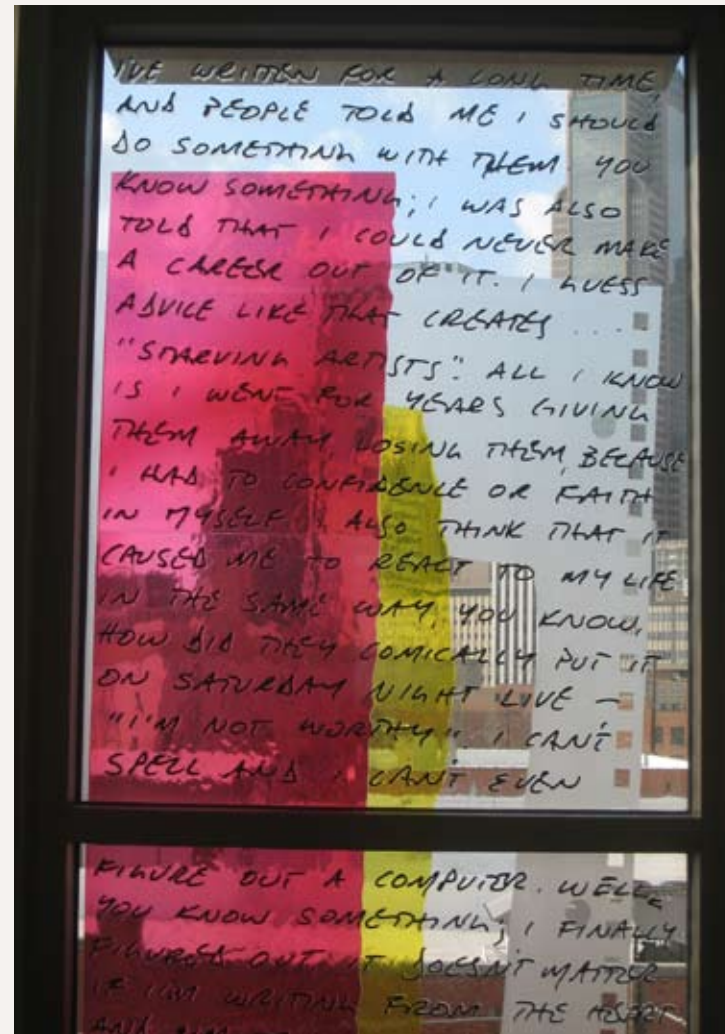 I'VE WRITTEN FOR A LONG TIME,
AND PEOPLE TOLD ME I SHOULD
DO SOMETHING WITH THEM. YOU
KNOW SOMETHING; I WAS ALSO
TOLD THAT I COULD NEVER MAKE
A CAREER OUT OF IT. I GUESS
ADVICE LIKE THAT CREATES ...
"STARVING ARTISTS". ALL I KNOW
IS I WENT FOR YEARS GIVING
THEM AWAY, LOSING THEM, BECAUSE
I HAD TO CONFIDENCE OR FAITH
IN MYSELF. I ALSO THINK THAT IT
CAUSED ME TO REACT TO MY LIFE
IN THE SAME WAY, YOU KNOW,
HOW DID THEY COMICALLY PUT IT
ON SATURDAY NIGHT LIVE —
"I'M NOT WORTHY". I CAN'T
SPELL AND I CAN'T EVEN
FIGURE OUT A COMPUTER. WELL,
YOU KNOW SOMETHING; I FINALLY
FIGURED OUT IT DOESN'T MATTER
IF I'M WRITING FROM THE HEART
AND